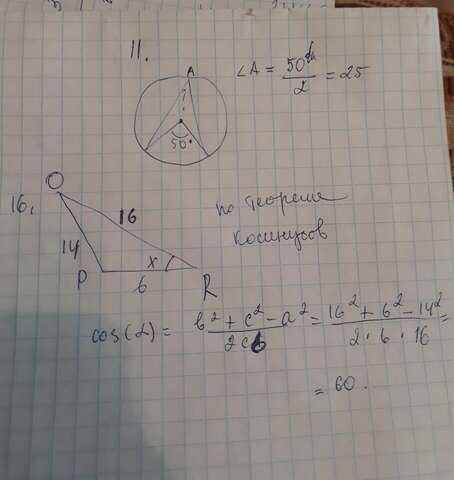 11.
A
∠A = 50° / 2 = 25
50°
O
16.
16
14
x
P
6
R
по теореме
косинусов
cos(α) = b² + c² - a² / 2cb = 16² + 6² - 14² / 2 · 6 · 16 =
= 60.